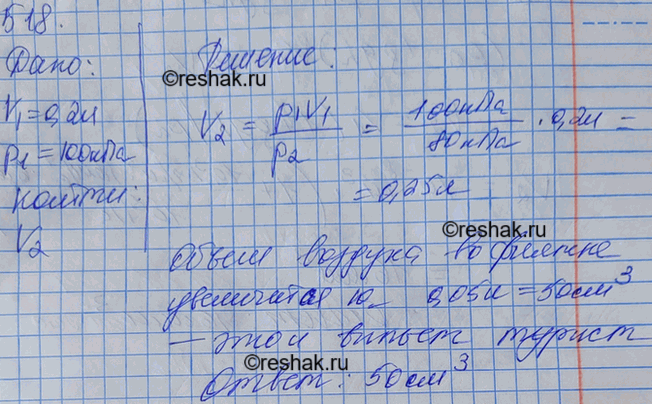 518.
Дано:
V1 = 0,2л
p1 = 100кПа
Найти:
V2
Решение:
©reshak.ru
V2 = p1V1 / p2 = 100кПа / 80кПа · 0,2л =
= 0,25л
©reshak.ru
Объем воздуха во фляжке
увеличится на 0,05л = 50см³
— этот выпьет турист
©reshak.ru
Ответ: 50см³